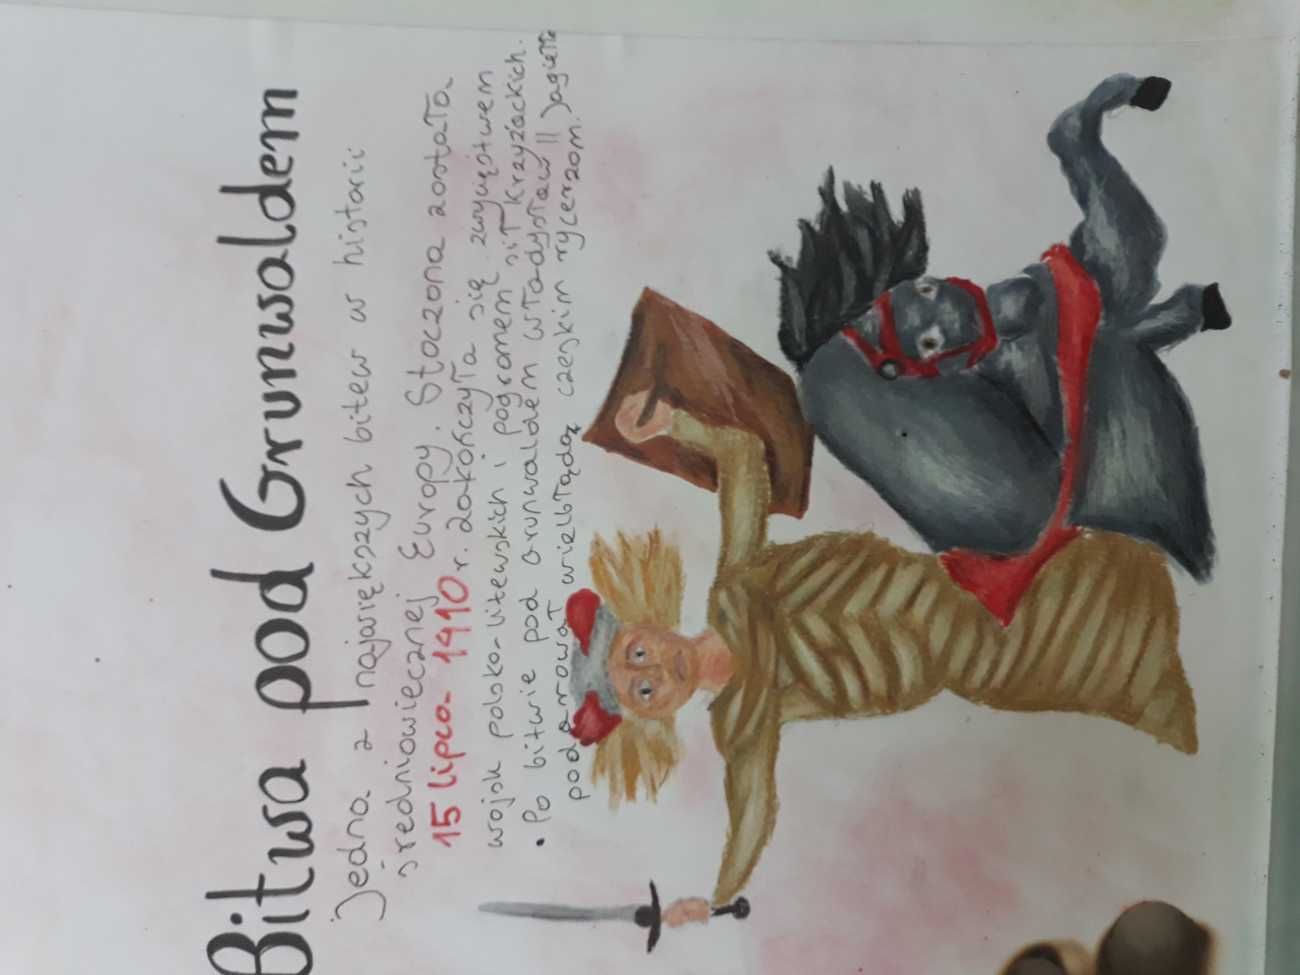 Bitwa pod Grunwaldem
Jedna z największych bitew w historii
średniowiecznej Europy. Stoczona została
15 lipca 1410 r. zakończyła się zwycięstwem
wojsk polsko-litewskich i pogromem sił krzyżackich.
• Po bitwie pod Grunwaldem Władysław II Jagiełło
podarował wielbłąda czeskim rycerzom.